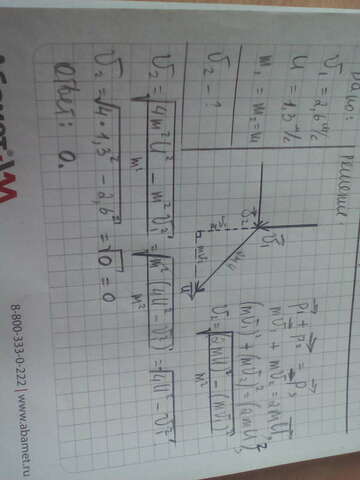 Дано:
Решение:
V₁ = 2,6 м/с
U = 1,3 м/с
m₁ = m₂ = m
V₂ - ?
V₂
V₁
mV₁
p₁ + p₂ = p₃
mV₁ + mV₂ = 2mU
(mV₁)² + (mV₂)² = (2mU)²
V₂ = √(2mU)² - (mV₁)²
m²
V₂ = √4m²U² - m²V₁² = √m²(4U² - V₁²) = √4U² - V₁²
m² m²
V₂ = √4·1,3² - 2,6² = √0 = 0
Ответ: 0.
8-800-333-0-222 | www.abamet.ru